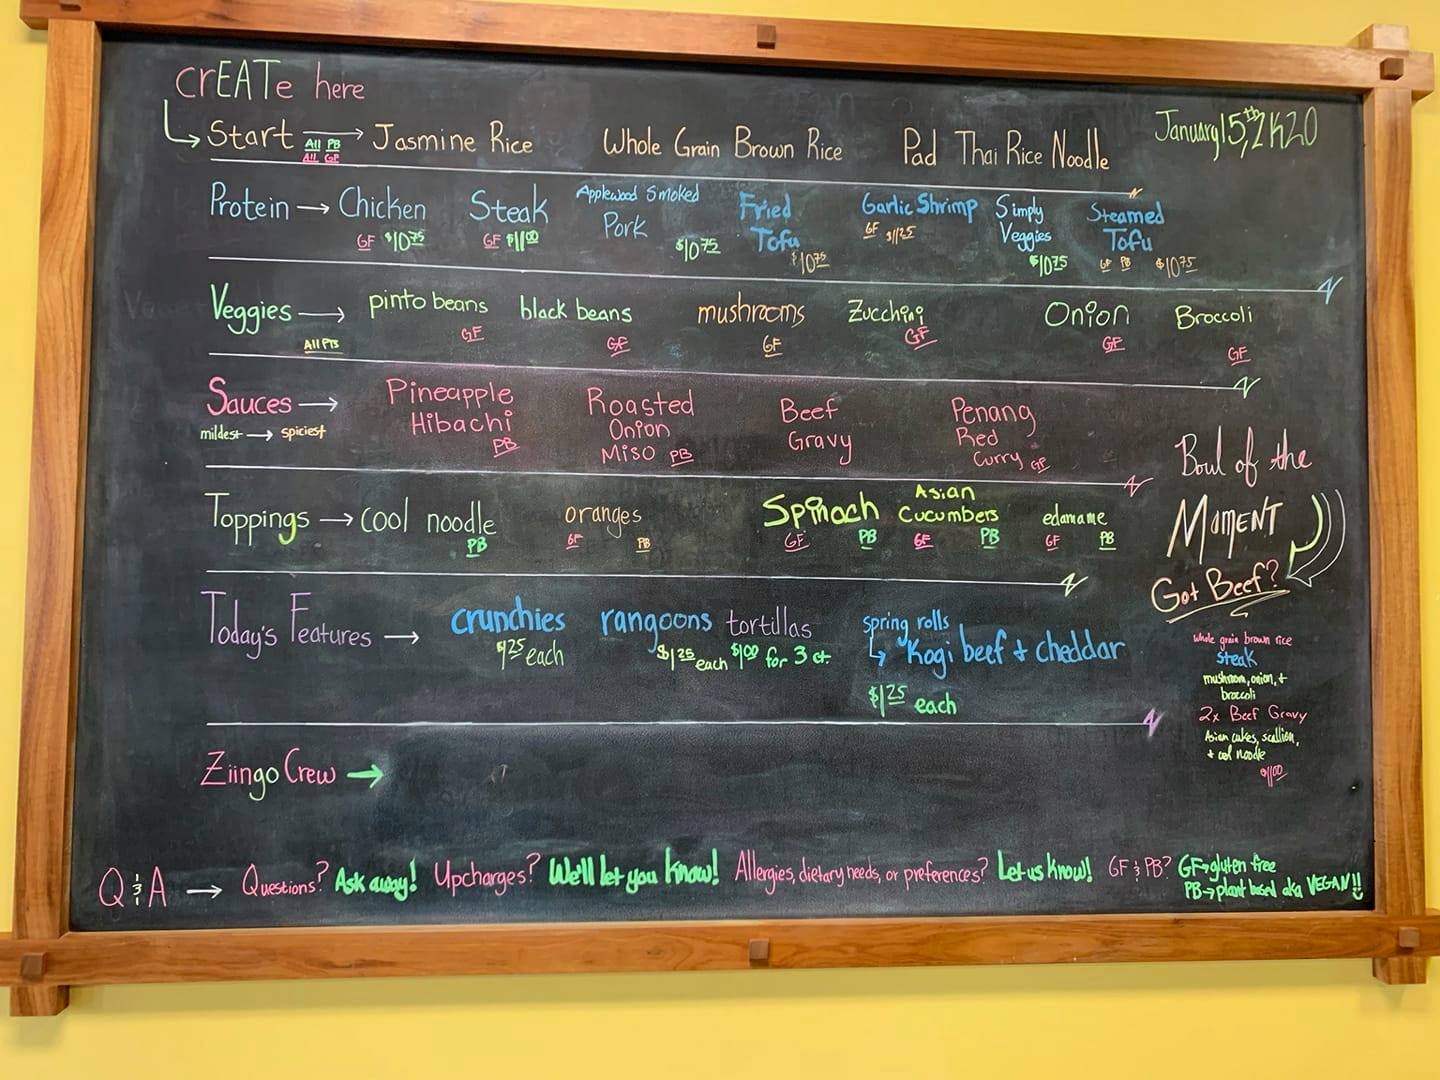 crEATe here
Start All PB All GF → Jasmine Rice Whole Grain Brown Rice Pad Thai Rice Noodle
January 15th, 2K20
Protein → Chicken GF $10.75 Steak GF $11.00 Applewood Smoked Pork $10.75 Fried Tofu $10.75 Garlic Shrimp GF $11.25 Simply Veggies $10.75 Steamed Tofu GF PB $10.75
Veggies → All PB pinto beans GF black beans GF mushrooms GF Zucchini GF Onion GF Broccoli GF
Sauces → mildest → spiciest Pineapple Hibachi PB Roasted Onion Miso PB Beef Gravy Penang Red Curry GF
Toppings → cool noodle PB oranges GF PB Spinach GF PB Asian Cucumbers GF PB edamame GF PB
Today's Features → crunchies $1.25 each rangoons $1.25 each tortillas $1.00 for 3 ct. spring rolls ↳ Kogi beef + cheddar $1.25 each
Bowl of the
MOMENT
Got Beef?
whole grain brown rice
steak
mushroom, onion, +
broccoli
2x Beef Gravy
Asian cukes, scallion,
+ cool noodle
$11.00
Ziingo Crew →
Q & A → Questions? Ask away! Upcharges? We'll let you know! Allergies, dietary needs, or preferences? Let us know! GF & PB? GF→gluten free
PB→plant based aka VEGAN!!